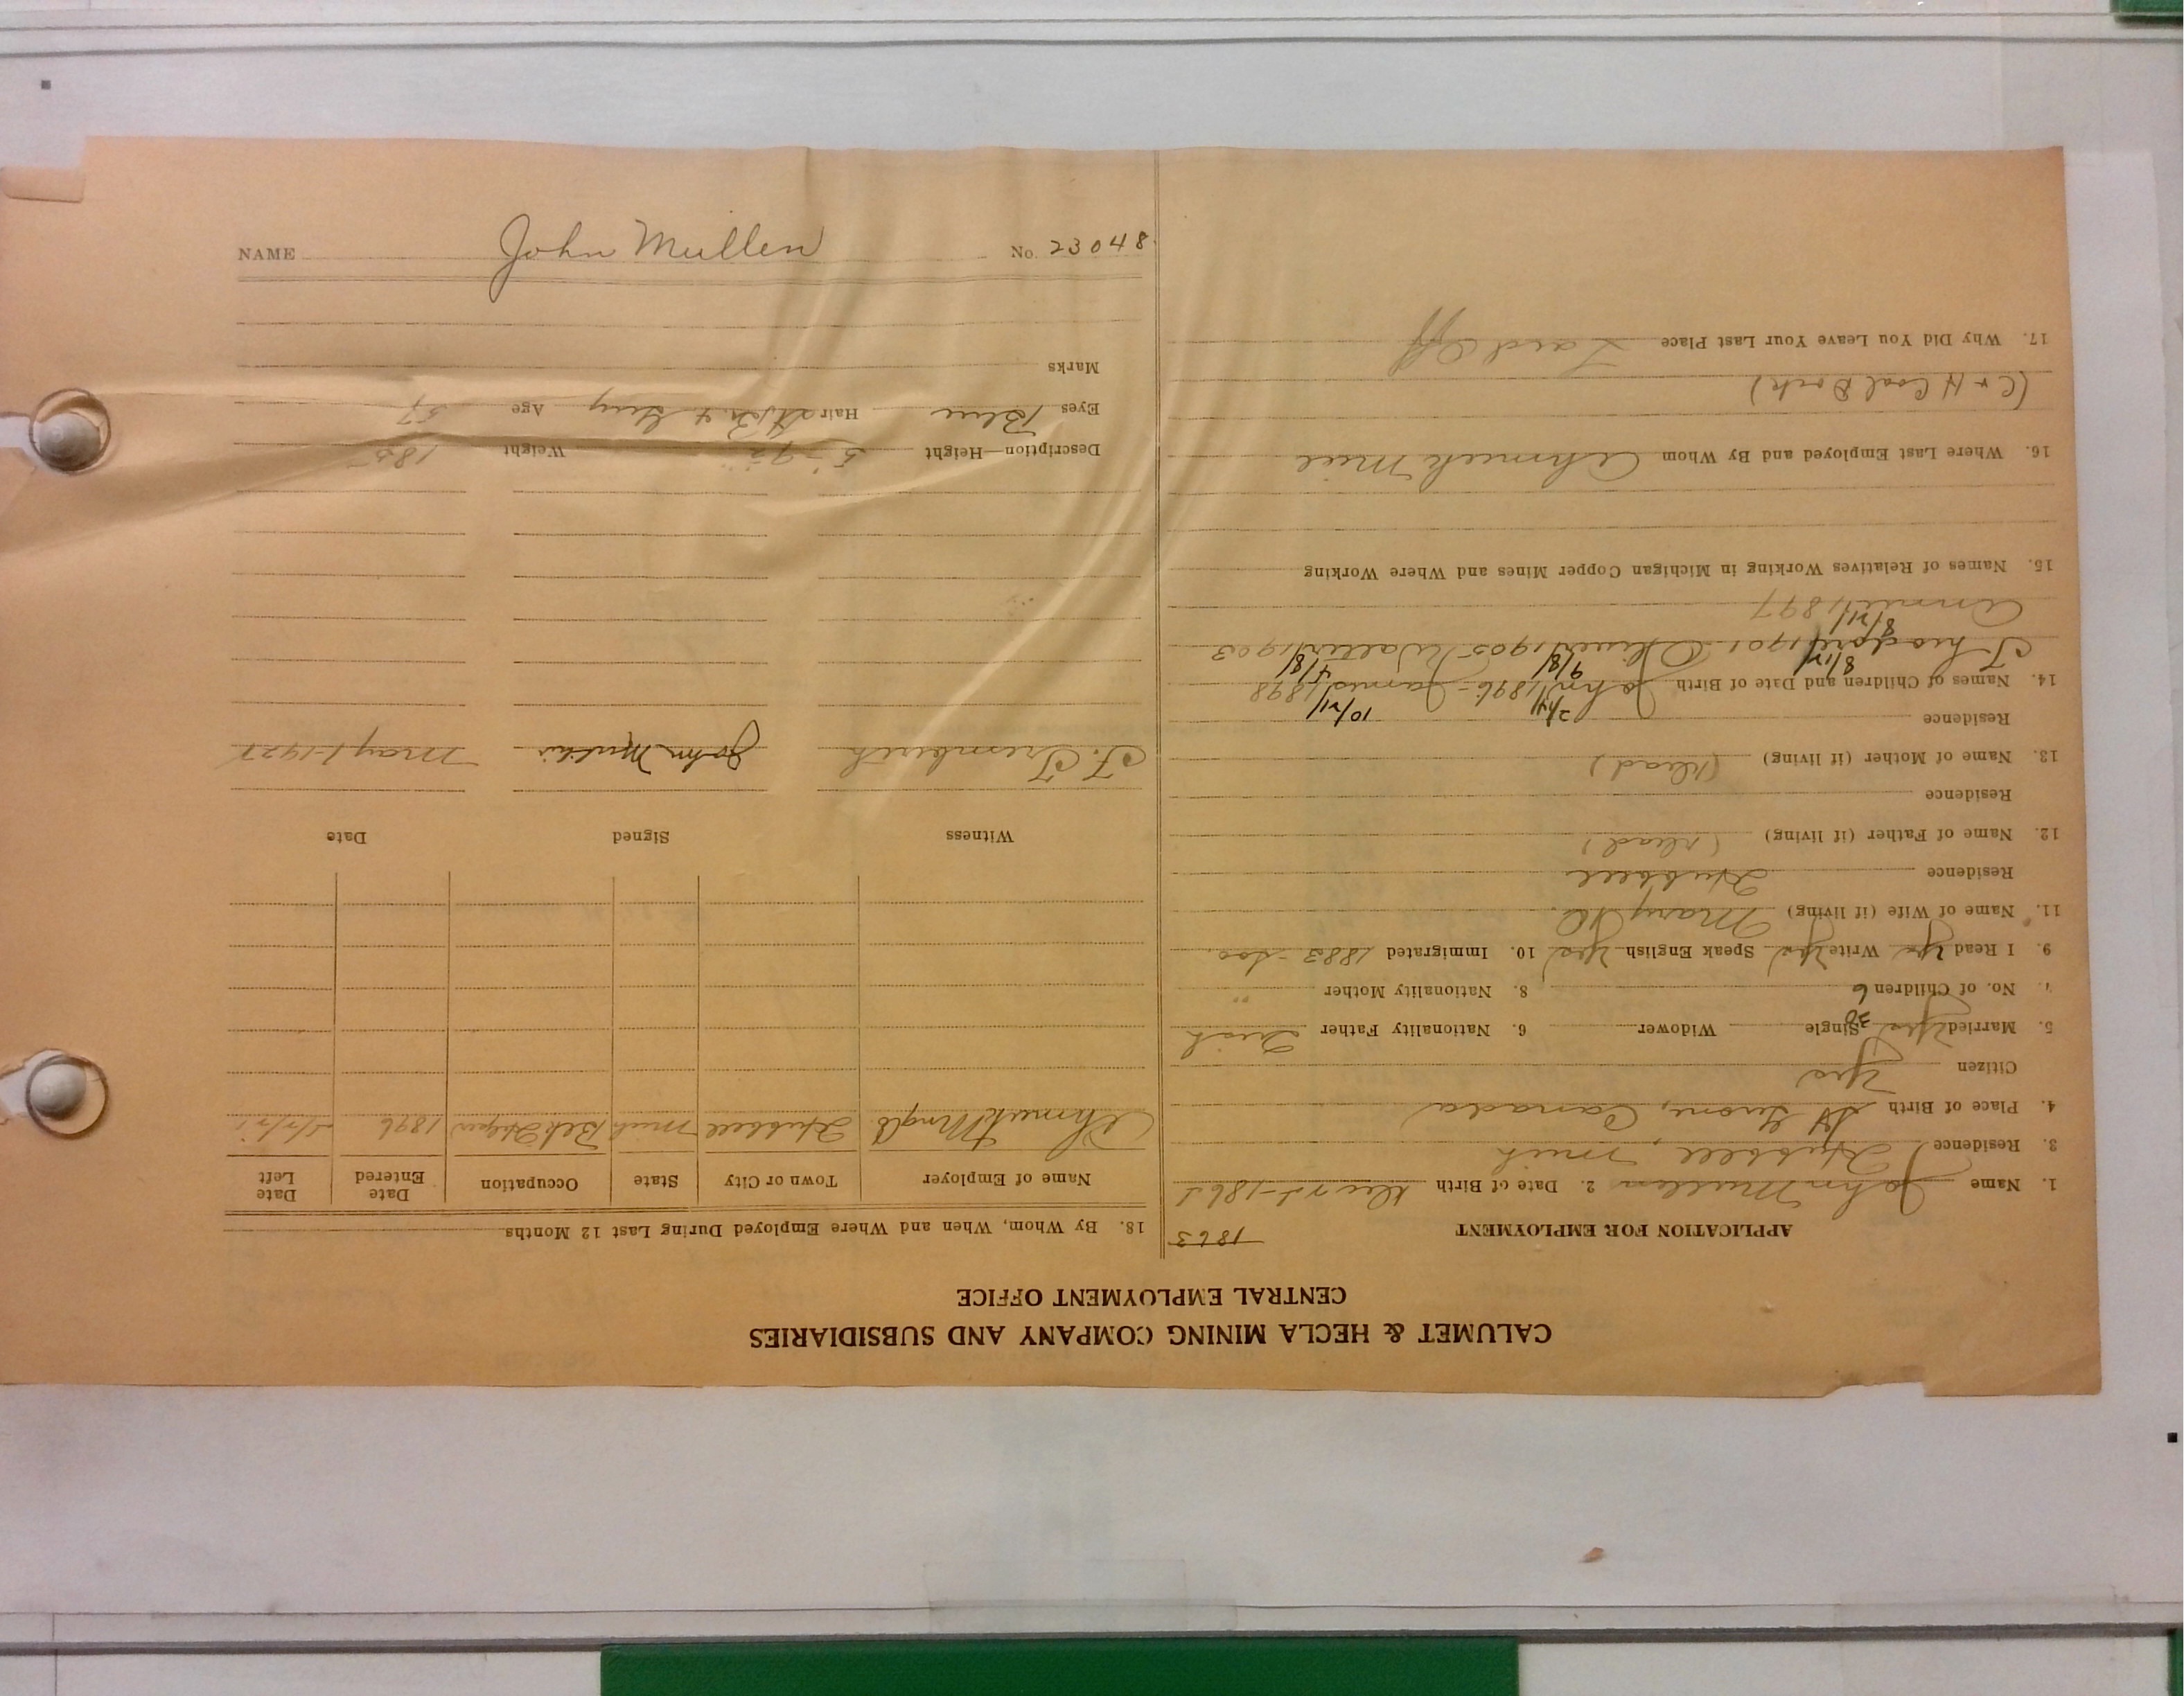 CALUMET & HECLA MINING COMPANY AND SUBSIDIARIES
CENTRAL EMPLOYMENT OFFICE
APPLICATION FOR EMPLOYMENT
1863
1. Name John Mullen 2. Date of Birth
3. Residence Hubbell, Mich
4. Place of Birth Canada
Citizen Yes
5. Married Yes 30 Single Widower 6. Nationality Father Irish
7. No. of Children 6 8. Nationality Mother "
9. I Read Yes Write Yes Speak English Yes 10. Immigrated 1883 - Soo
11. Name of Wife (if living) Mary
Residence Hubbell
12. Name of Father (if living) (Dead)
Residence
13. Name of Mother (if living) (Dead)
Residence
2/24 10/21
14. Names of Children and Date of Birth John 1896 - James 1898
8/12 9/8 4/8
Theodore 1901 - Oliver 1905 Walter 1903
8/21
Annie 1897
15. Names of Relatives Working in Michigan Copper Mines and Where Working
16. Where Last Employed and By Whom Ahmeek Mill
(C & H Coal Dock)
17. Why Did You Leave Your Last Place Laid Off
18. By Whom, When and Where Employed During Last 12 Months
Name of Employer Town or City State Occupation Date Entered Date Left
Ahmeek Mng Co Hubbell Mich 1896
Witness Signed Date
John May 1-1921
Description—Height 5'-9½" Weight 185
Eyes Blue Hair & Grey Age 57
Marks
NAME John Mullen No. 23048